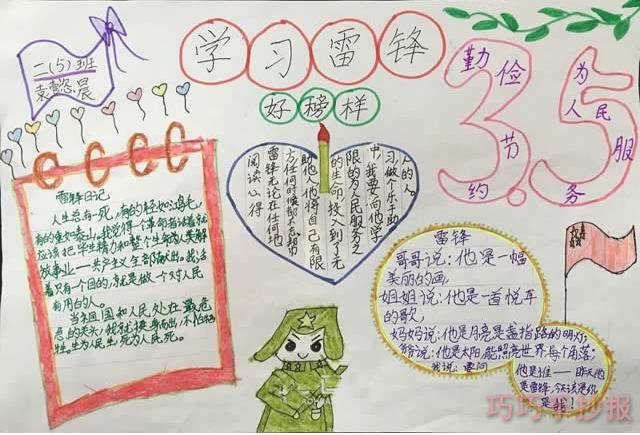 二(5)班
学习雷锋
好榜样
勤俭节约
3.5
为人民服务
雷锋日记
人生总有一死,有的轻如鸿毛,
有的重如泰山,我觉得一个革命者活着就
应该把毕生精力和整个生命为人类解
放事业——共产主义全部献出。我活
着只有一个目的,就是做一个对人民
有用的人。
当祖国和人民处在最危
急的关头,我就挺身而出,不怕牺
牲。生为人民生,死为人民死。
阅读心得
雷锋无论在任何地
方任何时候都不忘帮
助他人他将自己有限
的生命投入到了无
限的为人民服务之
中,我要向他学
习,做个乐于助
人的人。
雷锋
哥哥说:他是一幅
美丽的画,
姐姐说:他是一首悦耳
的歌,
妈妈说:他是月亮是盏指路的明灯,
爷爷说:他是太阳,能照亮世界每个角落;
我说:要问
他是谁——昨天他
是雷锋,今天该是你
是我!
巧巧手抄报